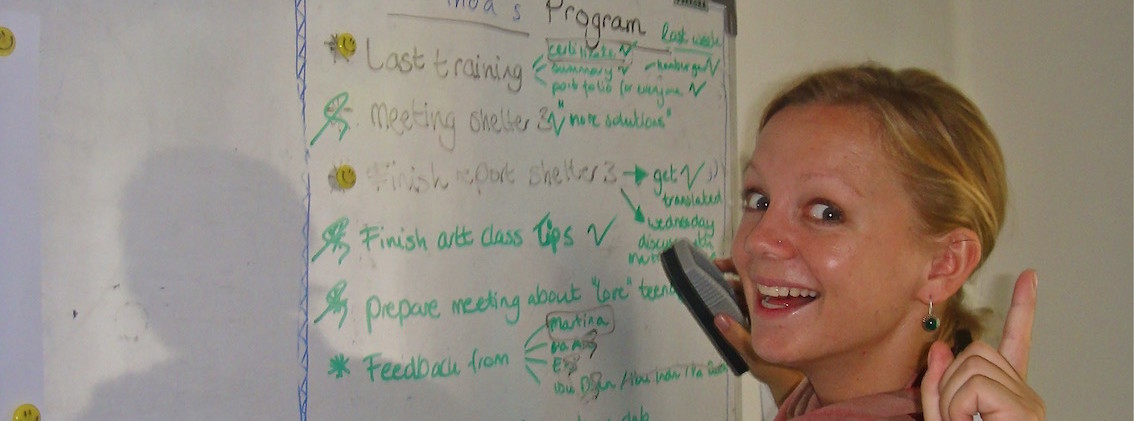 Program
last week
Last training
certificate
summary
portfolio for everyone
hamburger
Meeting shelter 3 "more solutions"
Finish report shelter 3
get
translated
wednesday
Finish art class Tips
Prepare meeting about "love"
Feedback from
martina